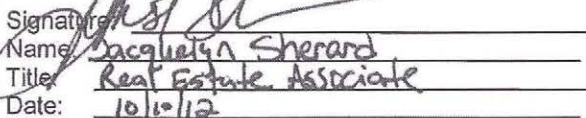 Signature:
Name: Jacquelyn Sherard
Title: Real Estate Associate
Date: 10/10/12